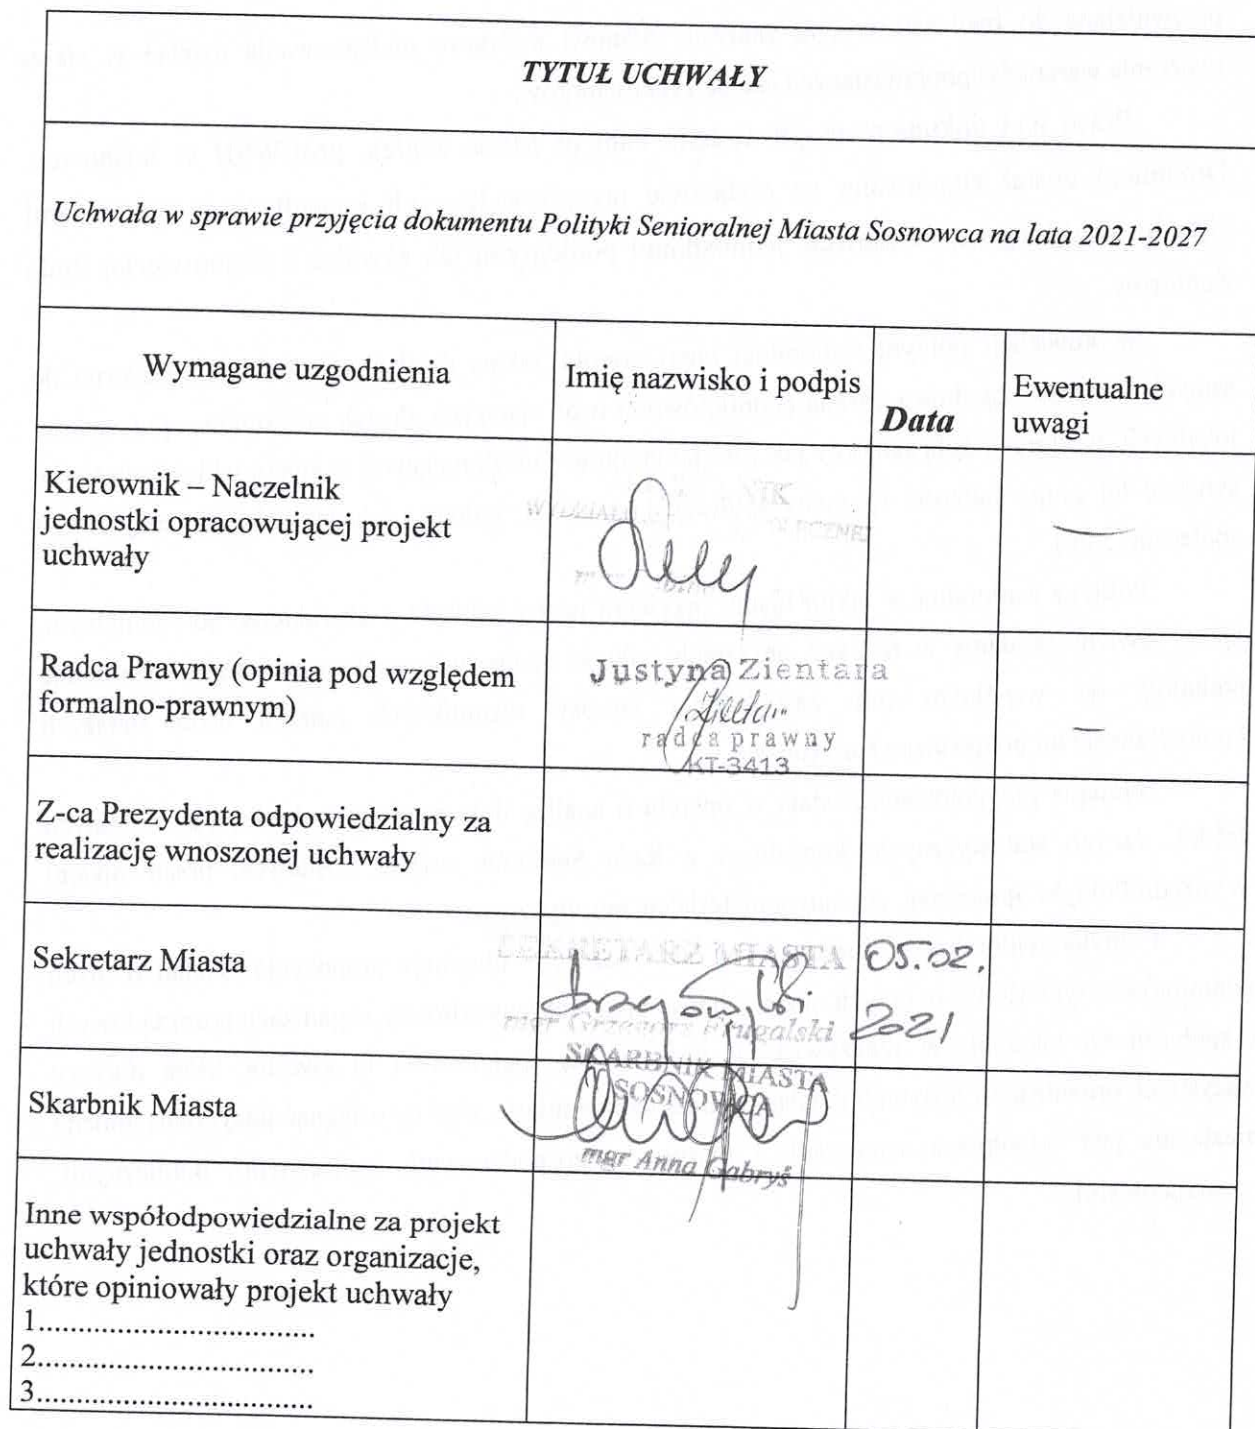 TYTUŁ UCHWAŁY
Uchwała w sprawie przyjęcia dokumentu Polityki Senioralnej Miasta Sosnowca na lata 2021-2027
Wymagane uzgodnienia
Imię nazwisko i podpis
Data
Ewentualne
uwagi
Kierownik – Naczelnik
jednostki opracowującej projekt
uchwały
Radca Prawny (opinia pod względem
formalno-prawnym)
Justyna Zientara
radca prawny
KT-3413
Z-ca Prezydenta odpowiedzialny za
realizację wnoszonej uchwały
Sekretarz Miasta
SEKRETARZ MIASTA
mgr Grzegorz
05.02.
2021
Skarbnik Miasta
SKARBNIK MIASTA
SOSNOWCA
mgr Anna Gabryś
Inne współodpowiedzialne za projekt
uchwały jednostki oraz organizacje,
które opiniowały projekt uchwały
1..................................
2..................................
3..................................